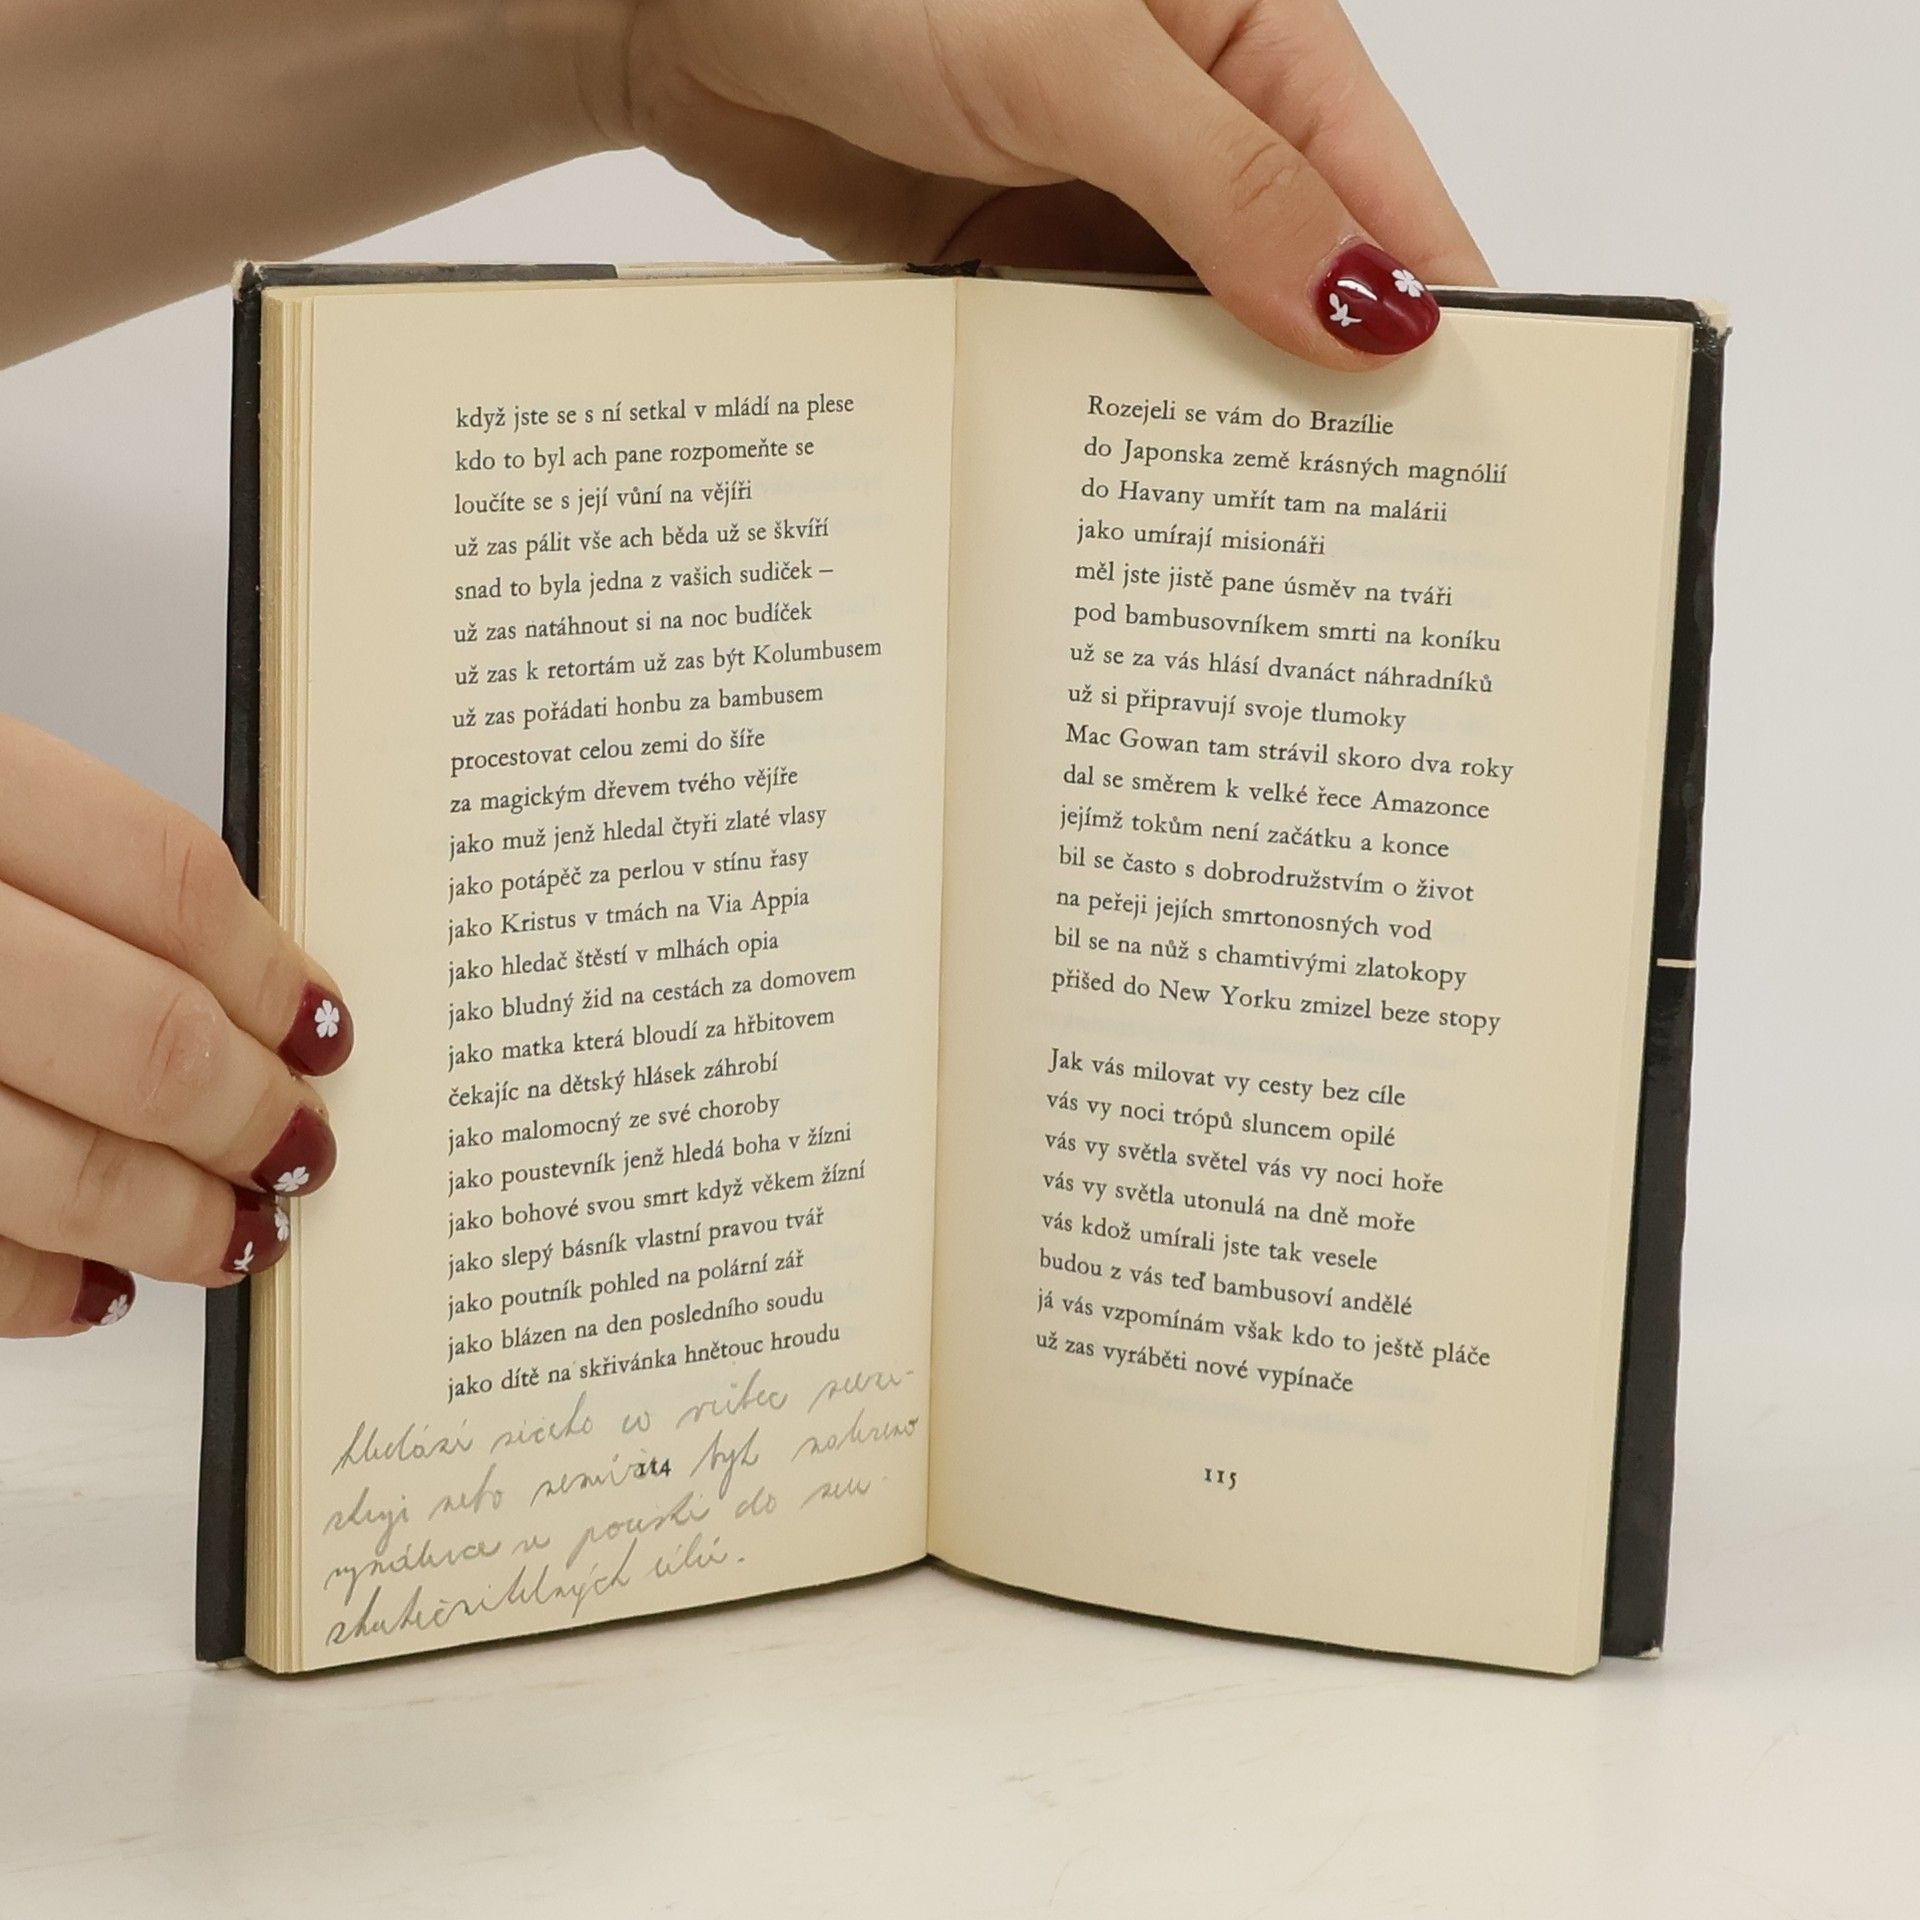 když jste se s ní setkal v mládí na plese
kdo to byl ach pane rozpomeňte se
loučíte se s její vůní na vějíři
už zas pálit vše ach běda už se škvíří
snad to byla jedna z vašich sudiček –
už zas natáhnout si na noc budíček
už zas k retortám už zas být Kolumbusem
už zas pořádati honbu za bambusem
procestovat celou zemi do šíře
za magickým dřevem tvého vějíře
jako muž jenž hledal čtyři zlaté vlasy
jako potápěč za perlou v stínu řasy
jako Kristus v tmách na Via Appia
jako hledač štěstí v mlhách opia
jako bludný žid na cestách za domovem
jako matka která bloudí za hřbitovem
čekajíc na dětský hlásek záhrobí
jako malomocný ze své choroby
jako poustevník jenž hledá boha v žízni
jako bohové svou smrt když věkem žízní
jako slepý básník vlastní pravou tvář
jako poutník pohled na polární zář
jako blázen na den posledního soudu
jako dítě na skřivánka hnětouc hroudu
nebo
do
skutečnitelných cílů.
114
Rozejeli se vám do Brazílie
do Japonska země krásných magnólií
do Havany umřít tam na malárii
jako umírají misionáři
měl jste jistě pane úsměv na tváři
pod bambusovníkem smrti na koníku
už se za vás hlásí dvanáct náhradníků
už si připravují svoje tlumoky
Mac Gowan tam strávil skoro dva roky
dal se směrem k velké řece Amazonce
jejímž tokům není začátku a konce
bil se často s dobrodružstvím o život
na peřeji jejích smrtonosných vod
bil se na nůž s chamtivými zlatokopy
přišed do New Yorku zmizel beze stopy
Jak vás milovat vy cesty bez cíle
vás vy noci trópů sluncem opilé
vás vy světla světel vás vy noci hoře
vás vy světla utonulá na dně moře
vás kdož umírali jste tak vesele
budou z vás teď bambusoví andělé
já vás vzpomínám však kdo to ještě pláče
už zas vyráběti nové vypínače
115